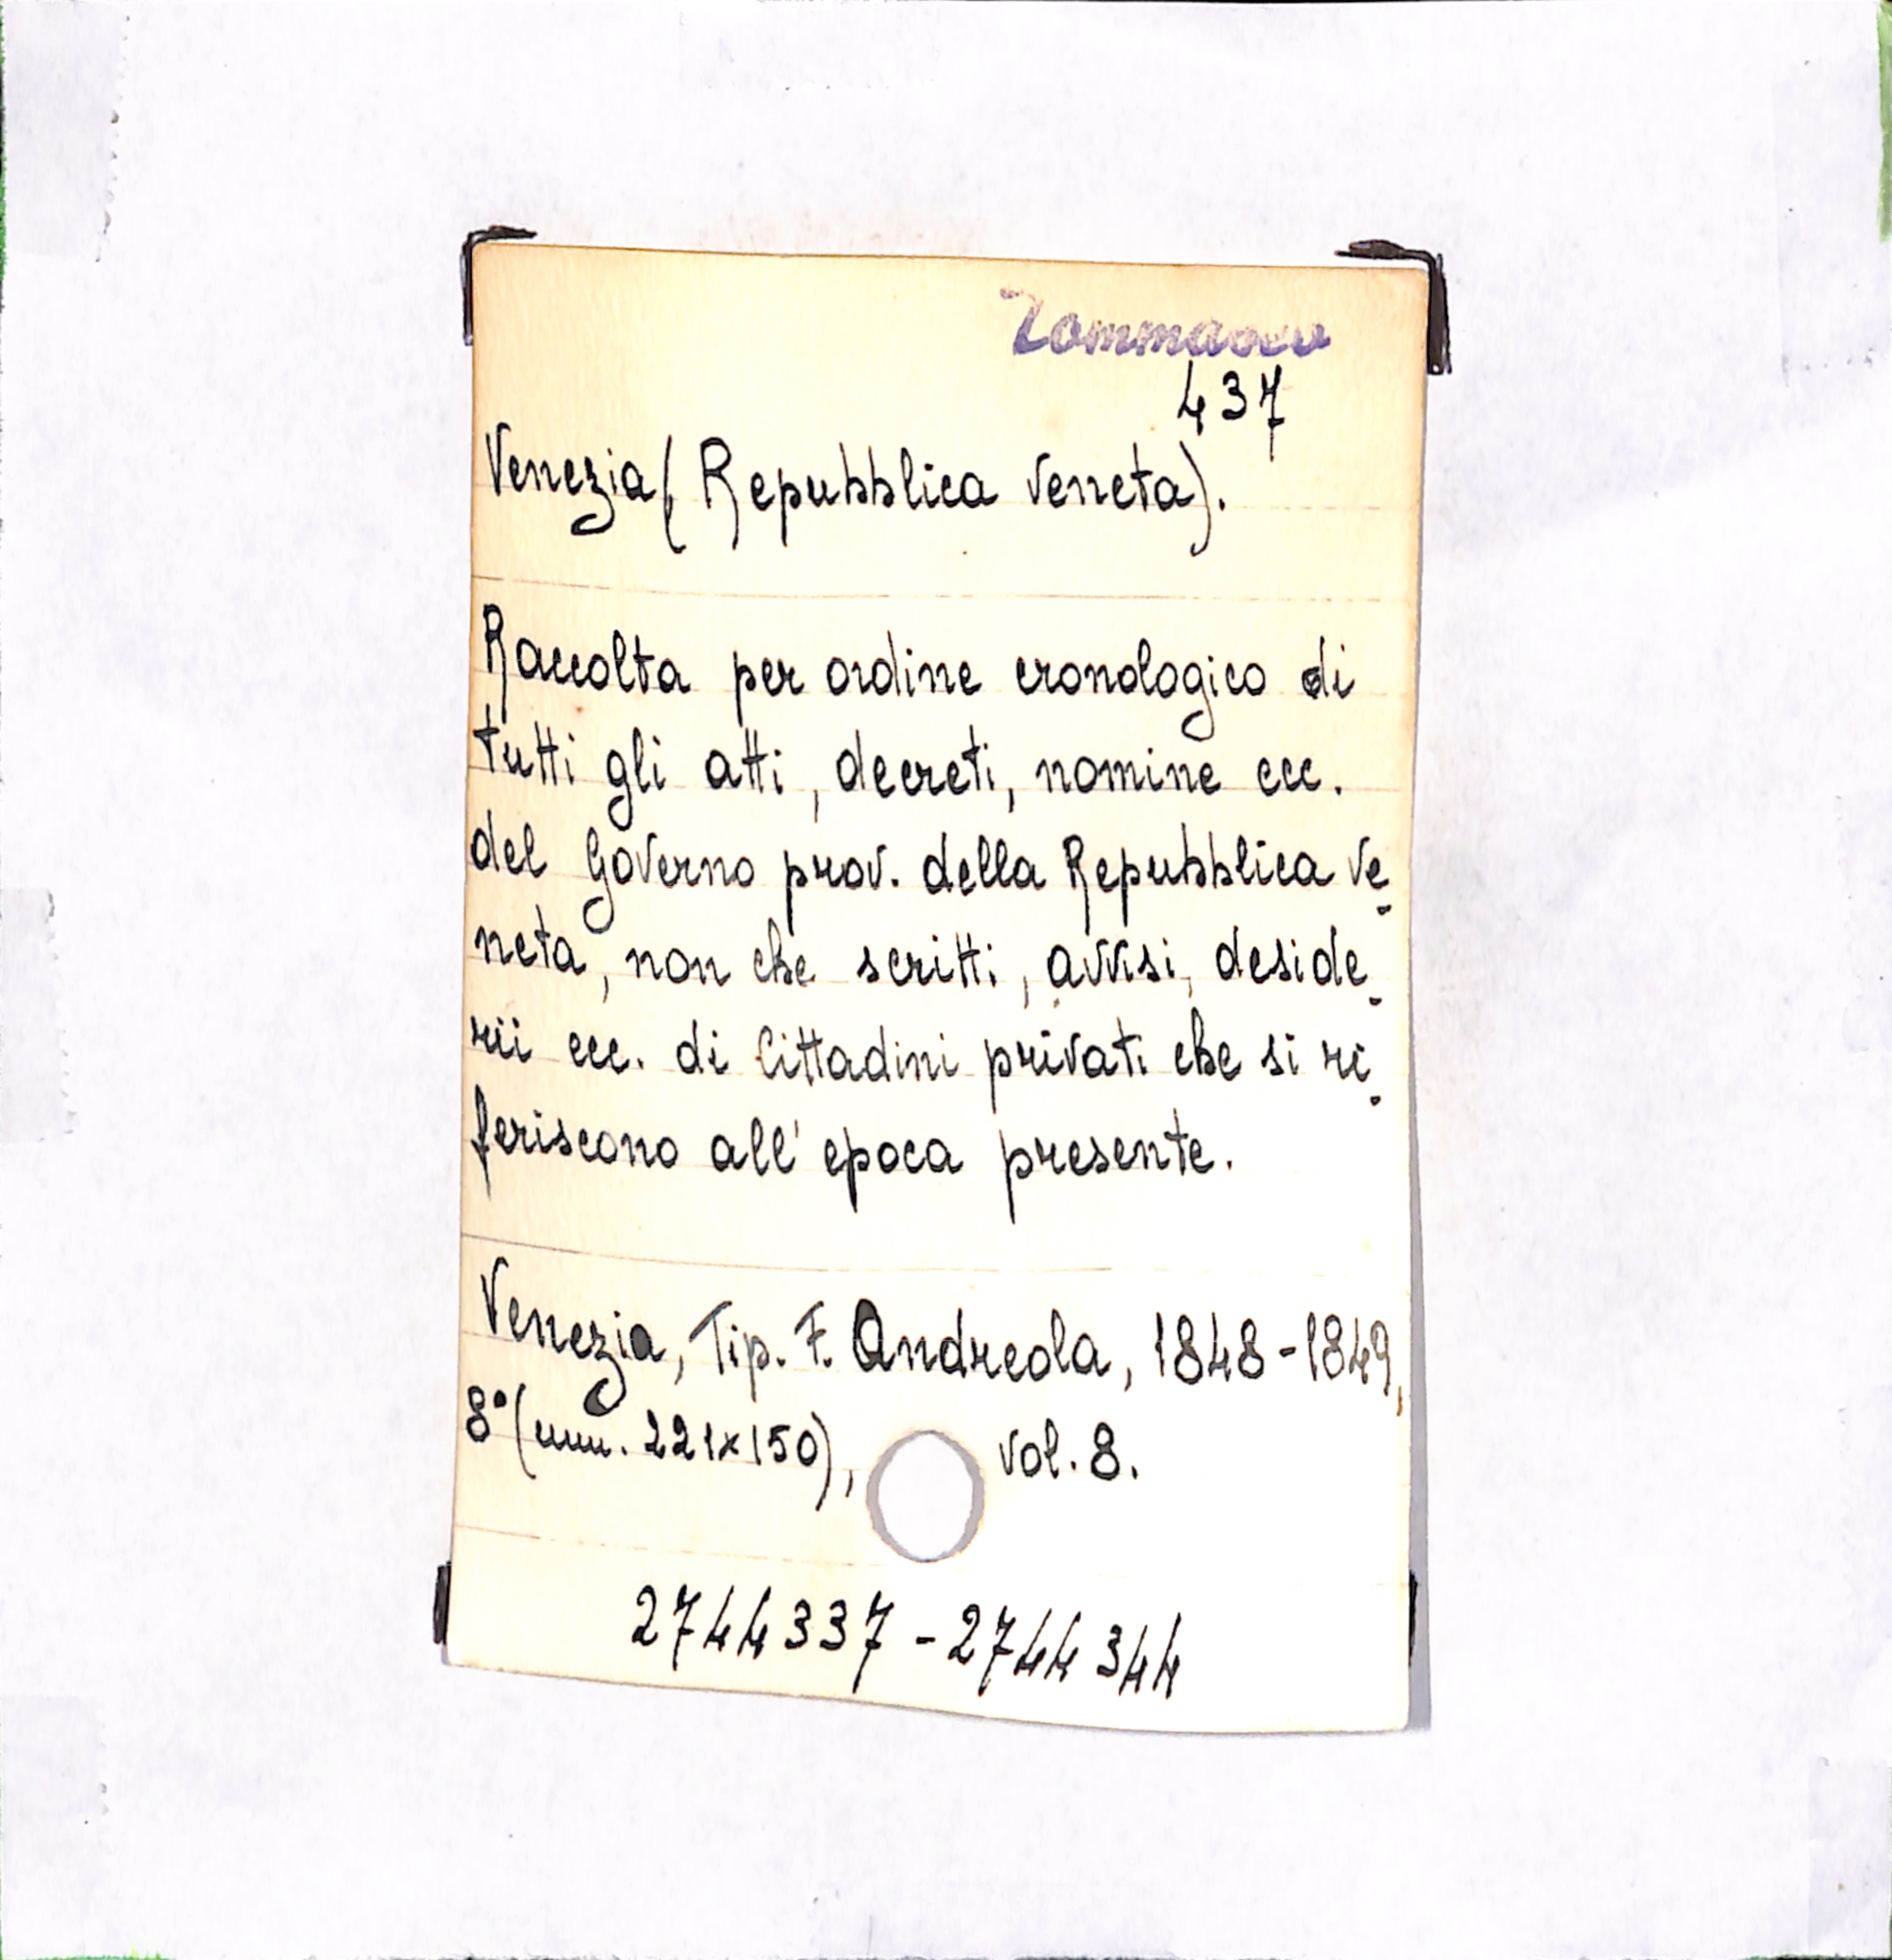 Tommaseo
437
Venezia (Repubblica veneta).
Raccolta per ordine cronologico di
tutti gli atti, decreti, nomine ecc.
del Governo prov. della Repubblica Ve-
neta, non che scritti, avvisi, deside-
rii ecc. di Cittadini privati che si ri-
feriscono all'epoca presente.
Venezia, Tip. F. Andreola, 1848-1849,
8° (mm. 221x150), vol. 8.
2744337-2744344